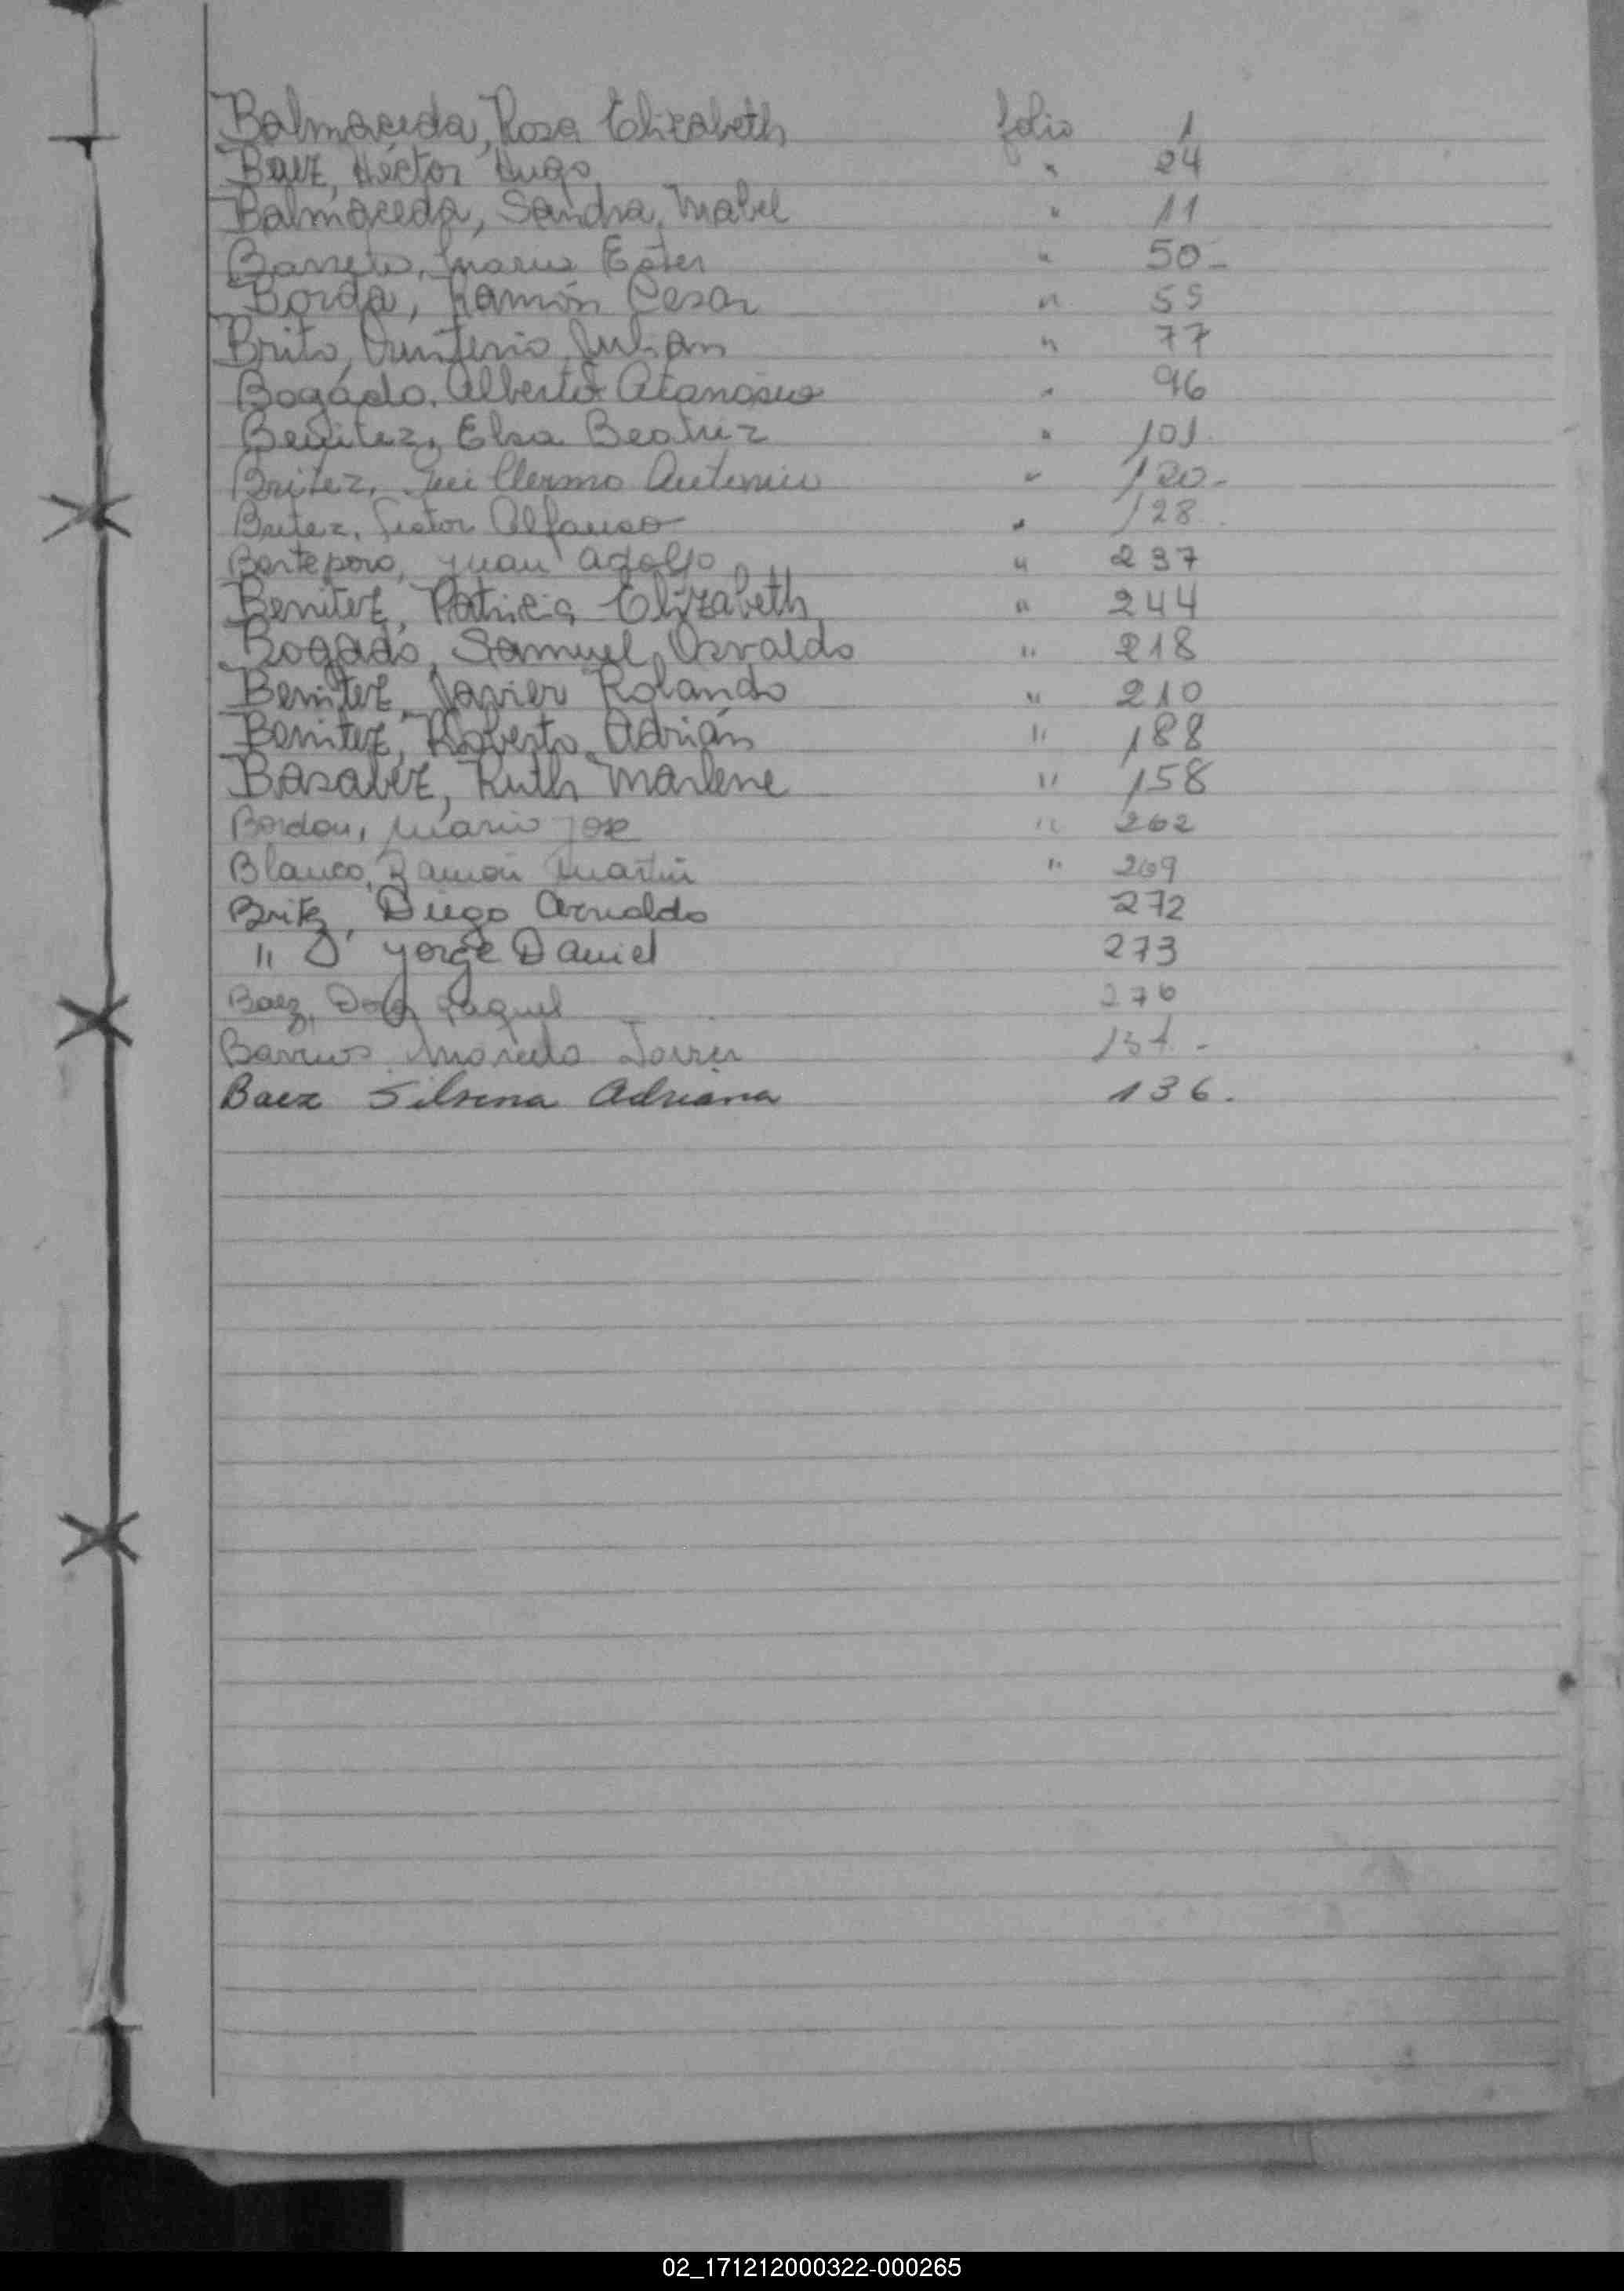 Balmaceda, Rosa Elizabeth folio 1
Baez, Héctor Hugo " 24
Balmaceda, Sandra Mabel " 11
Barreto, Maria Ester " 50-
Borda, Ramón Cesar " 55
Brito, Quinterio Julian " 77
Bogado, Alberto Atanacio " 96
Benitez, Elsa Beatriz " 101
Britez, Guillermo Antonio " 120-
Britez, Alfonso " 128
Juan Adolfo " 237
Benitez, Patricia Elizabeth " 244
Bogado, Samuel Osvaldo " 218
Benitez, Javier Rolando " 210
Benitez, Roberto Adrián " 188
Basabez, Ruth Marlene " 158
Bordon, Mario Jose " 262
Blanco, Ramón Martin " 269
Britz, Diego Arnaldo 272
" Jorge Daniel 273
Baez, Raquel 276
Barrios Marcelo Javier
Baez Silvina Adriana 136.
02_171212000322-000265